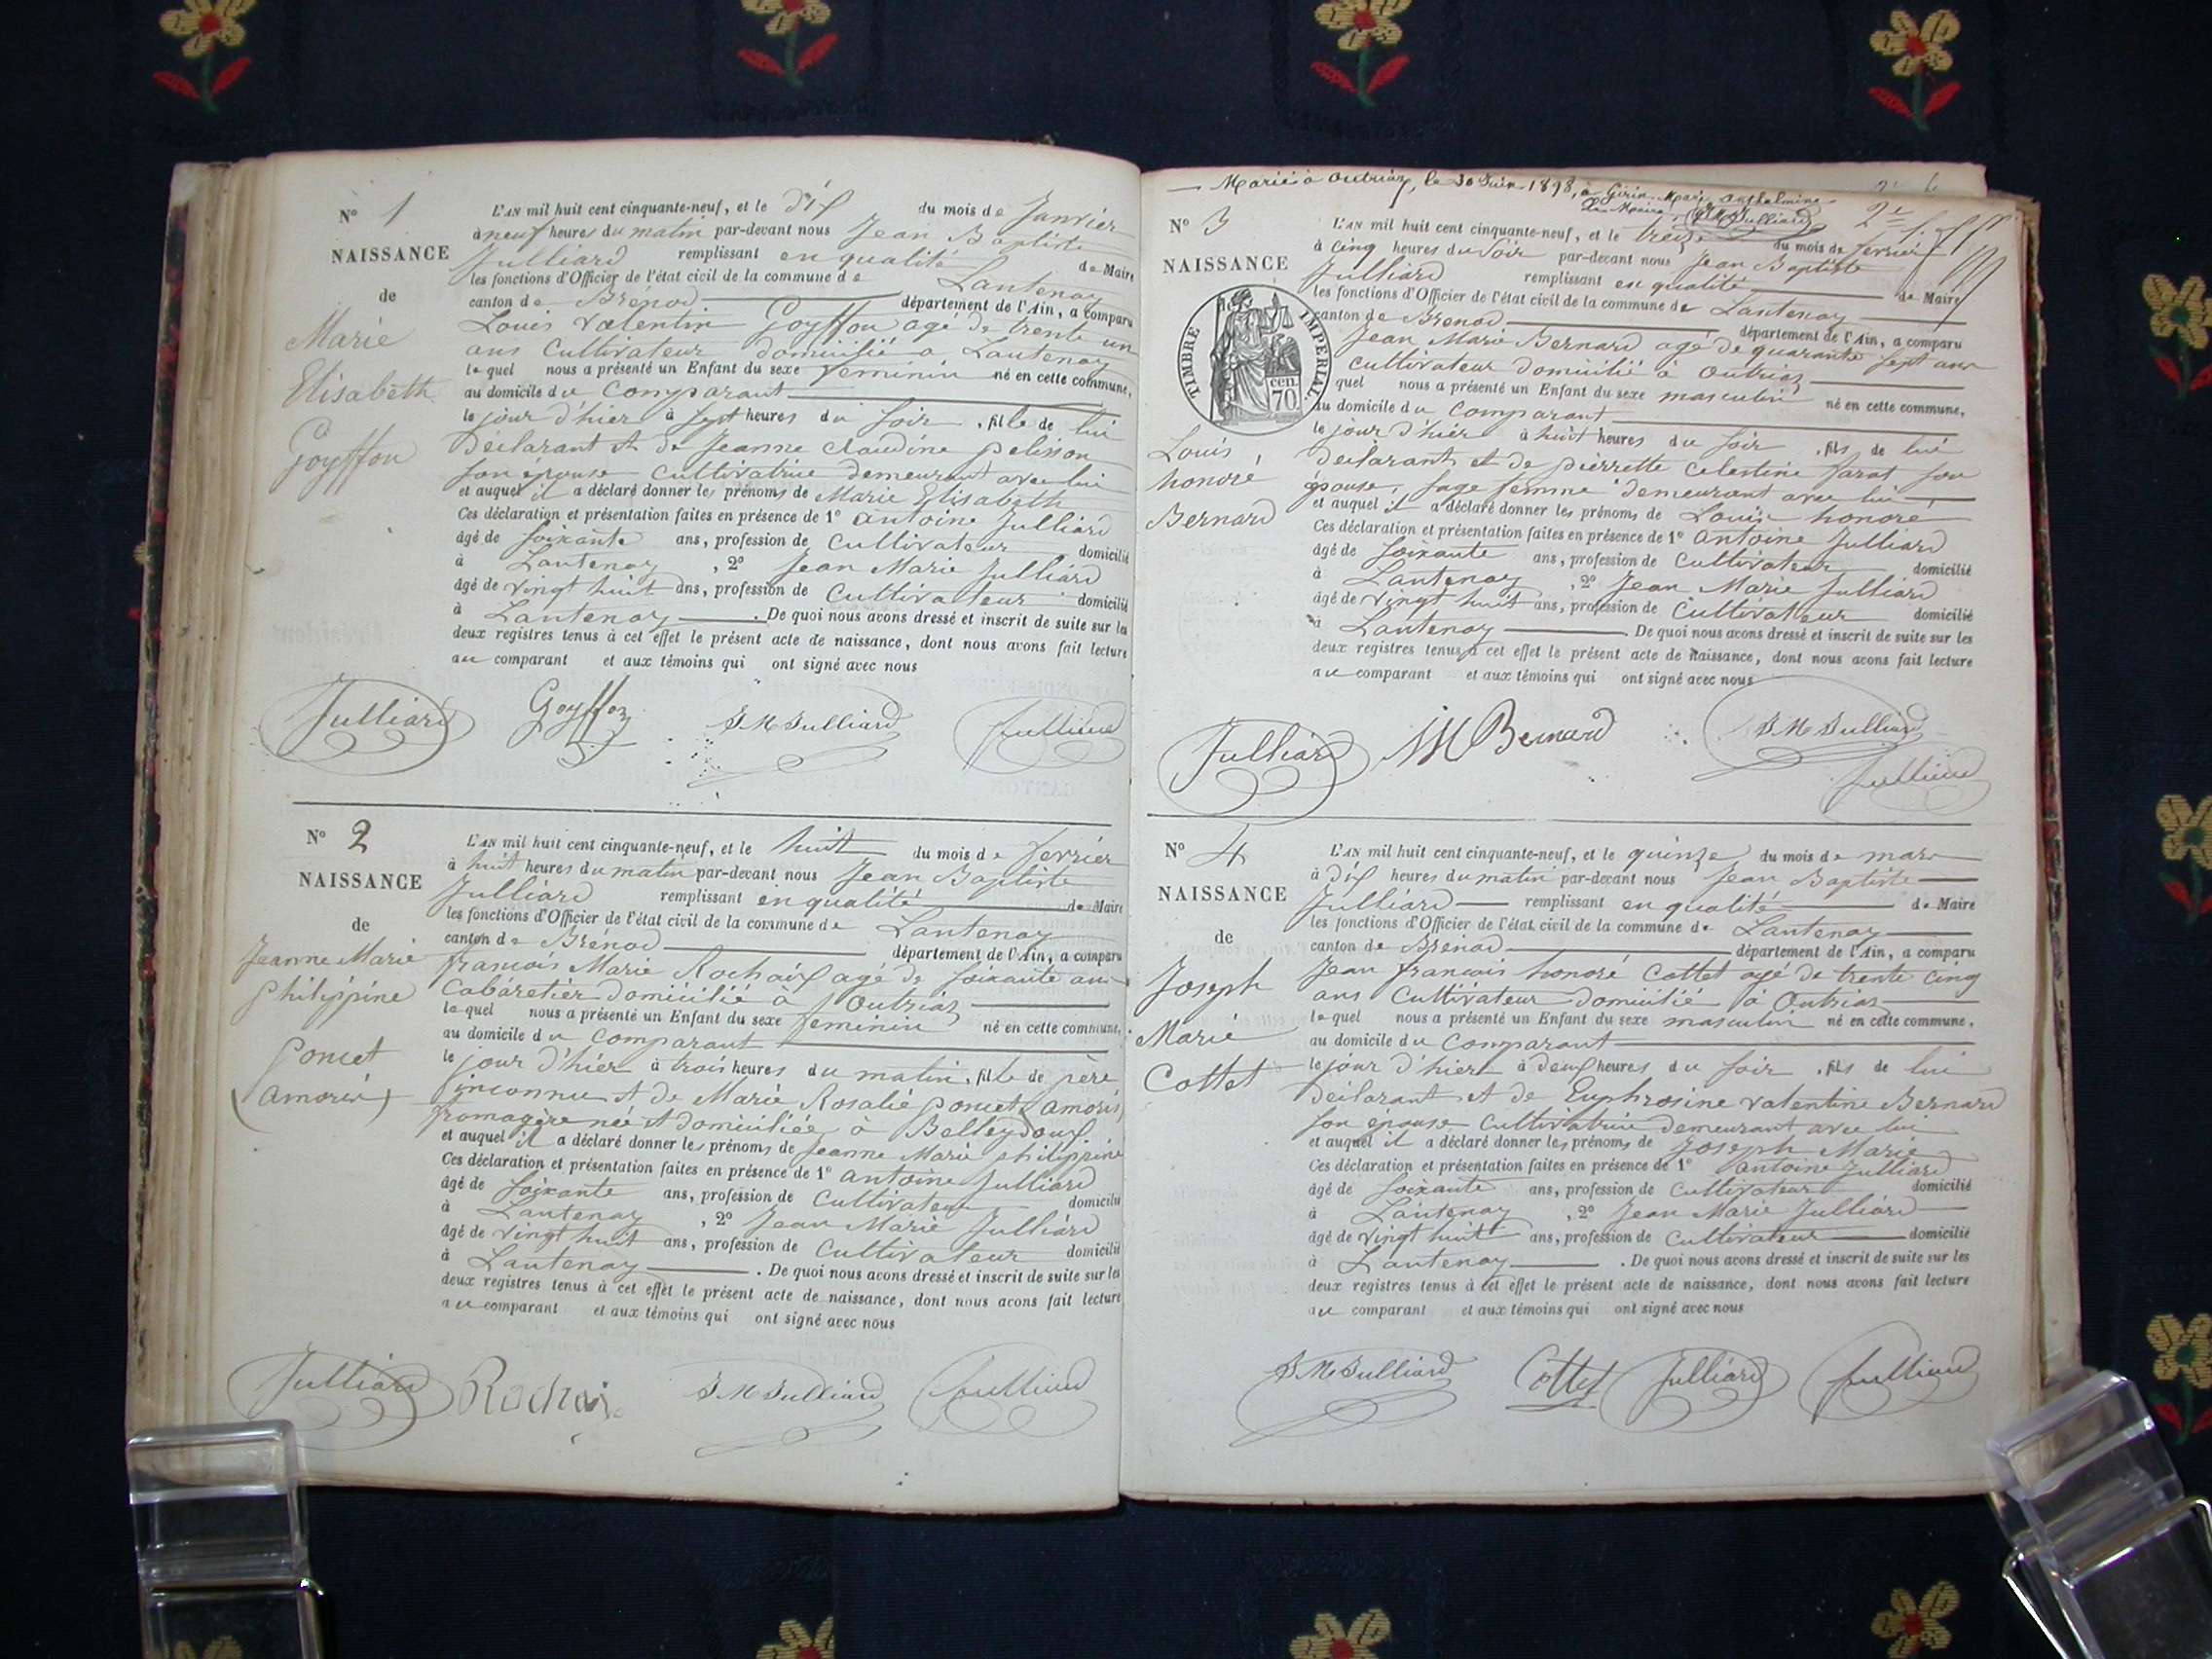 N° 1
NAISSANCE
de
Marie
Elisabeth
Goyffon
L'AN mil huit cent cinquante-neuf, et le dix du mois de Janvier
à neuf heures du matin par-devant nous Jean Baptiste
Julliard remplissant en qualité de Maire
les fonctions d'Officier de l'état civil de la commune de Lantenay
canton de Brénod département de l'Ain, a comparu
Louis Valentin Goyffon agé de trente un
ans Cultivateur domicilié à Lantenay
lequel nous a présenté un Enfant du sexe feminin né en cette commune,
au domicile du Comparant
le jour d'hier à sept heures du soir, fille de lui
Déclarant et de Jeanne Claudine pelisson
son épouse Cultivatrice demeurant avec lui
et auquel il a déclaré donner les prénoms de Marie Elisabeth
Ces déclaration et présentation faites en présence de 1° Antoine Julliard
âgé de soixante ans, profession de Cultivateur domicilié
à Lantenay, 2° Jean Marie Julliard
âgé de vingt huit ans, profession de Cultivateur domicilié
à Lantenay. De quoi nous avons dressé et inscrit de suite sur les
deux registres tenus à cet effet le présent acte de naissance, dont nous avons fait lecture
au comparant et aux témoins qui ont signé avec nous
Julliard Goyffon J M Julliard Julliard
N° 2
NAISSANCE
de
Jeanne Marie
Philippine
Poncet
(amoris)
L'AN mil huit cent cinquante-neuf, et le huit du mois de fevrier
à huit heures du matin par-devant nous Jean Baptiste
Julliard remplissant en qualité de Maire
les fonctions d'Officier de l'état civil de la commune de Lantenay
canton de Brénod département de l'Ain, a comparu
francois Marie Rochaix agé de soixante ans
Cabaretier domicilié à Outriaz
lequel nous a présenté un Enfant du sexe feminin né en cette commune,
au domicile du Comparant
le jour d'hier à trois heures du matin, fille de père
inconnu et de Marie Rosalie poncet (amoris)
fromagère née et domiciliée à Belleydoux
et auquel il a déclaré donner les prénoms de Jeanne Marie philippine
Ces déclaration et présentation faites en présence de 1° Antoine Julliard
âgé de soixante ans, profession de Cultivateur domicilié
à Lantenay, 2° Jean Marie Julliard
âgé de vingt huit ans, profession de Cultivateur domicilié
à Lantenay. De quoi nous avons dressé et inscrit de suite sur les
deux registres tenus à cet effet le présent acte de naissance, dont nous avons fait lecture
au comparant et aux témoins qui ont signé avec nous
Julliard Rochaix J M Julliard Julliard
Marié à Outriaz, le 30 Juin 1898, à Girin Marie Anthelmine
Le Maire, J M Julliard
N° 3
NAISSANCE
TIMBRE IMPERIAL
70 cen.
Louis
honoré
Bernard
L'AN mil huit cent cinquante-neuf, et le treize du mois de fevrier
à cinq heures du soir par-devant nous Jean Baptiste
Julliard remplissant en qualité de Maire
les fonctions d'Officier de l'état civil de la commune de Lantenay
canton de Brenod département de l'Ain, a comparu
Jean Marie Bernard agé de quarante sept ans
Cultivateur domicilié à Outriaz
quel nous a présenté un Enfant du sexe masculin né en cette commune,
au domicile du Comparant
le jour d'hier à huit heures du soir, fils de lui
déclarant et de pierrette Celestine farat son
épouse, sage femme demeurant avec lui
et auquel il a déclaré donner les prénoms de Louis honoré
Ces déclaration et présentation faites en présence de 1° Antoine Julliard
âgé de soixante ans, profession de Cultivateur domicilié
à Lantenay, 2° Jean Marie Julliard
âgé de vingt huit ans, profession de Cultivateur domicilié
à Lantenay. De quoi nous avons dressé et inscrit de suite sur les
deux registres tenus à cet effet le présent acte de naissance, dont nous avons fait lecture
au comparant et aux témoins qui ont signé avec nous
Julliard JM Bernard J M Julliard
Julliard
N° 4
NAISSANCE
de
Joseph
Marie
Cottet
L'AN mil huit cent cinquante-neuf, et le quinze du mois de mars
à dix heures du matin par-devant nous Jean Baptiste
Julliard remplissant en qualité de Maire
les fonctions d'Officier de l'état civil de la commune de Lantenay
canton de Brenod département de l'Ain, a comparu
Jean francois honoré Cottet agé de trente cinq
ans Cultivateur domicilié à Outriaz
lequel nous a présenté un Enfant du sexe masculin né en cette commune,
au domicile du Comparant
le jour d'hier à deux heures du soir, fils de lui
Déclarant et de Euphrosine Valentine Bernard
son épouse Cultivatrice demeurant avec lui
et auquel il a déclaré donner les prénoms de Joseph Marie
Ces déclaration et présentation faites en présence de 1° Antoine Julliard
âgé de soixante ans, profession de Cultivateur domicilié
à Lantenay, 2° Jean Marie Julliard
âgé de vingt huit ans, profession de Cultivateur domicilié
à Lantenay. De quoi nous avons dressé et inscrit de suite sur les
deux registres tenus à cet effet le présent acte de naissance, dont nous avons fait lecture
au comparant et aux témoins qui ont signé avec nous
J M Julliard Cottet Julliard Julliard